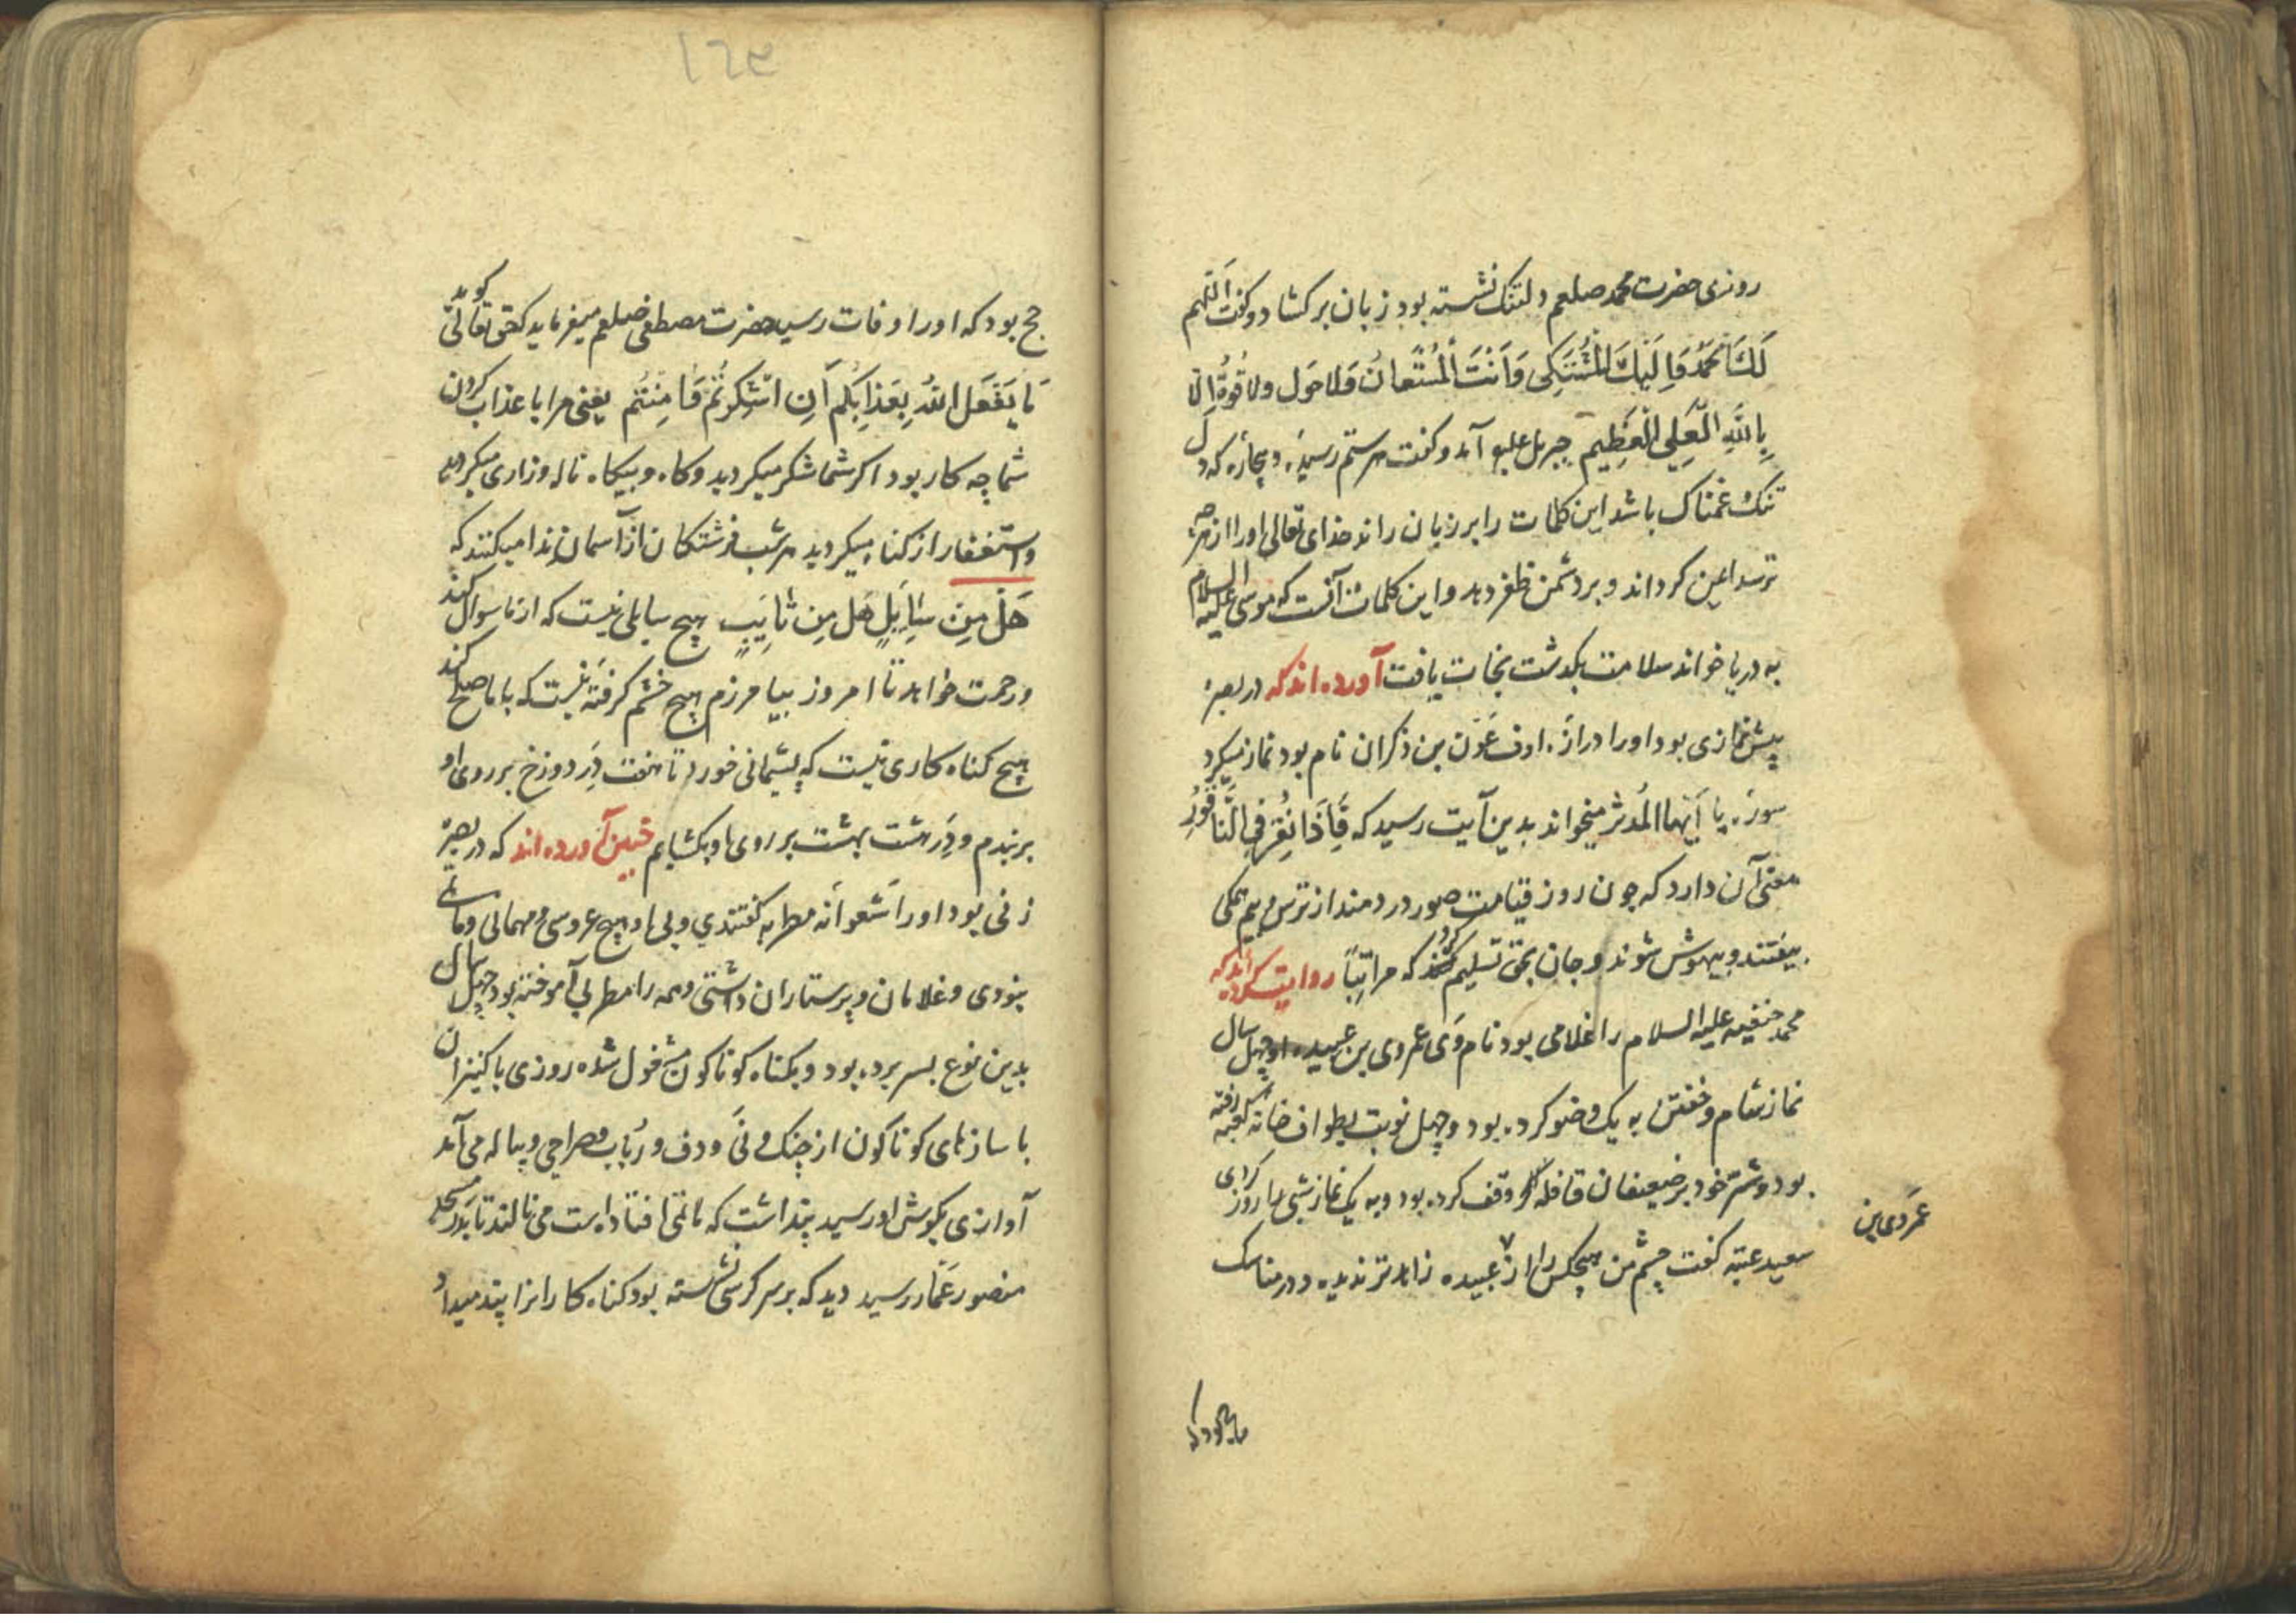 روزی حضرت محمد صلعم دلتنک نشسته بود زبان برکشاد و کفت اَللّهم
لَکَ الحَمدُ وَاِلَیکَ المُشتَکی وَاَنتَ المُستَعانُ وَلا حَول ولا قُوةُ اِلّا
بِاللّهِ الّعَلِیِ الّعَظِیم جبریل علیه آمد و کفت هر ستم رسیده و بیچاره که دل
تنک غمناک باشد این کلمات را بر زبان راند خدای تعالی او را از هرچه
ترسد ایمن کرداند و بر دشمن ظفر دهد و این کلمات آنست که موسی علیه السلام
به دریا خواند سلامت بکدشت نجات یافت آورده اند که در بصره
پیش نمازی بود او را دراز. اوف عَوّن بن ذکران نام بود نماز میکرد
سوره یا اَیّها المُدثر میخواند بدین آیت رسید که فَاِذَا نُقِرَ فِی النَّاقُورِ
معنی آن دارد که چون روز قیامت صور در دمند از ترس و بیم همکی
بیفتند و بیهوش شوند و جان بحق تسلیم کرد که مراتباً روایت کرده اند که
محمد حنفیه علیه السلام را غلامی بود نام وَی عمردی بن عبیده او چهل سال
نماز شام و خفتن به یک وضو کرده بود و چهل نوبت بطواف خانه کعبه رفته
بود و شتر خود بر ضعیفان قافله وقف کرده بود و به یک نماز شبی را روز کردی
عمَردی بن
سعید عتبه کفت چشم من هیچکس را از عبیده زاهدتر ندیده و در مناسک
حج بود که
۱۶۹
حج بود که او را وفات رسید حضرت مصطفی صلعم میفرماید که حق تعالی کوید
مَا یَفعَل اللهُ بِعَذابِکُم اَنِ اتشَکرتُم وَامِنتُم یعنی مرا با عذاب کردن
شما چه کار بود اکر شما شکر میکردید و کاه و بیکاه ناله و زاری میکردید
و استغفار از کناه میکردید هر شب فرشتکان از آسمان ندا میکنند که
هَلّ مِن سَایِلٍ هَل مِن تایِبٍ هیچ سایلی نیست که از ما سوال کند
و رحمت خواهد تا امروز بیامرزم هیچ خشم کرفته نیست که با ما صلح کند
هیچ کناه کاری نیست که پشیمانی خورد تا هفت دَر دوزخ بر روی او
بربندم و دَر هشت بهشت بر روی او بکشایم چنین آورده اند که در بصره
زنی بود او را شَعوانَه مطربه کفتندی و بی او هیچ عروسی و مهمانی و ماتمی
نبودی و غلامان و پرستاران داشتی و همه را مطربی آموخته بود چهل سال
بدین نوع بسر برده بود و بکناه کوناکون مشغول شده روزی با کنیزان
با سازهای کوناکون از چنک و نَی و دف و رُباب و صراحی و پیاله می آمد
آوازی بکوش او رسید پنداشت که ماتمی افتاده است می نالند تا بدر مسجد
منصور عَمّار رسید دید که بر سر کرسی نشسته بود کناه کارانرا پند میداد